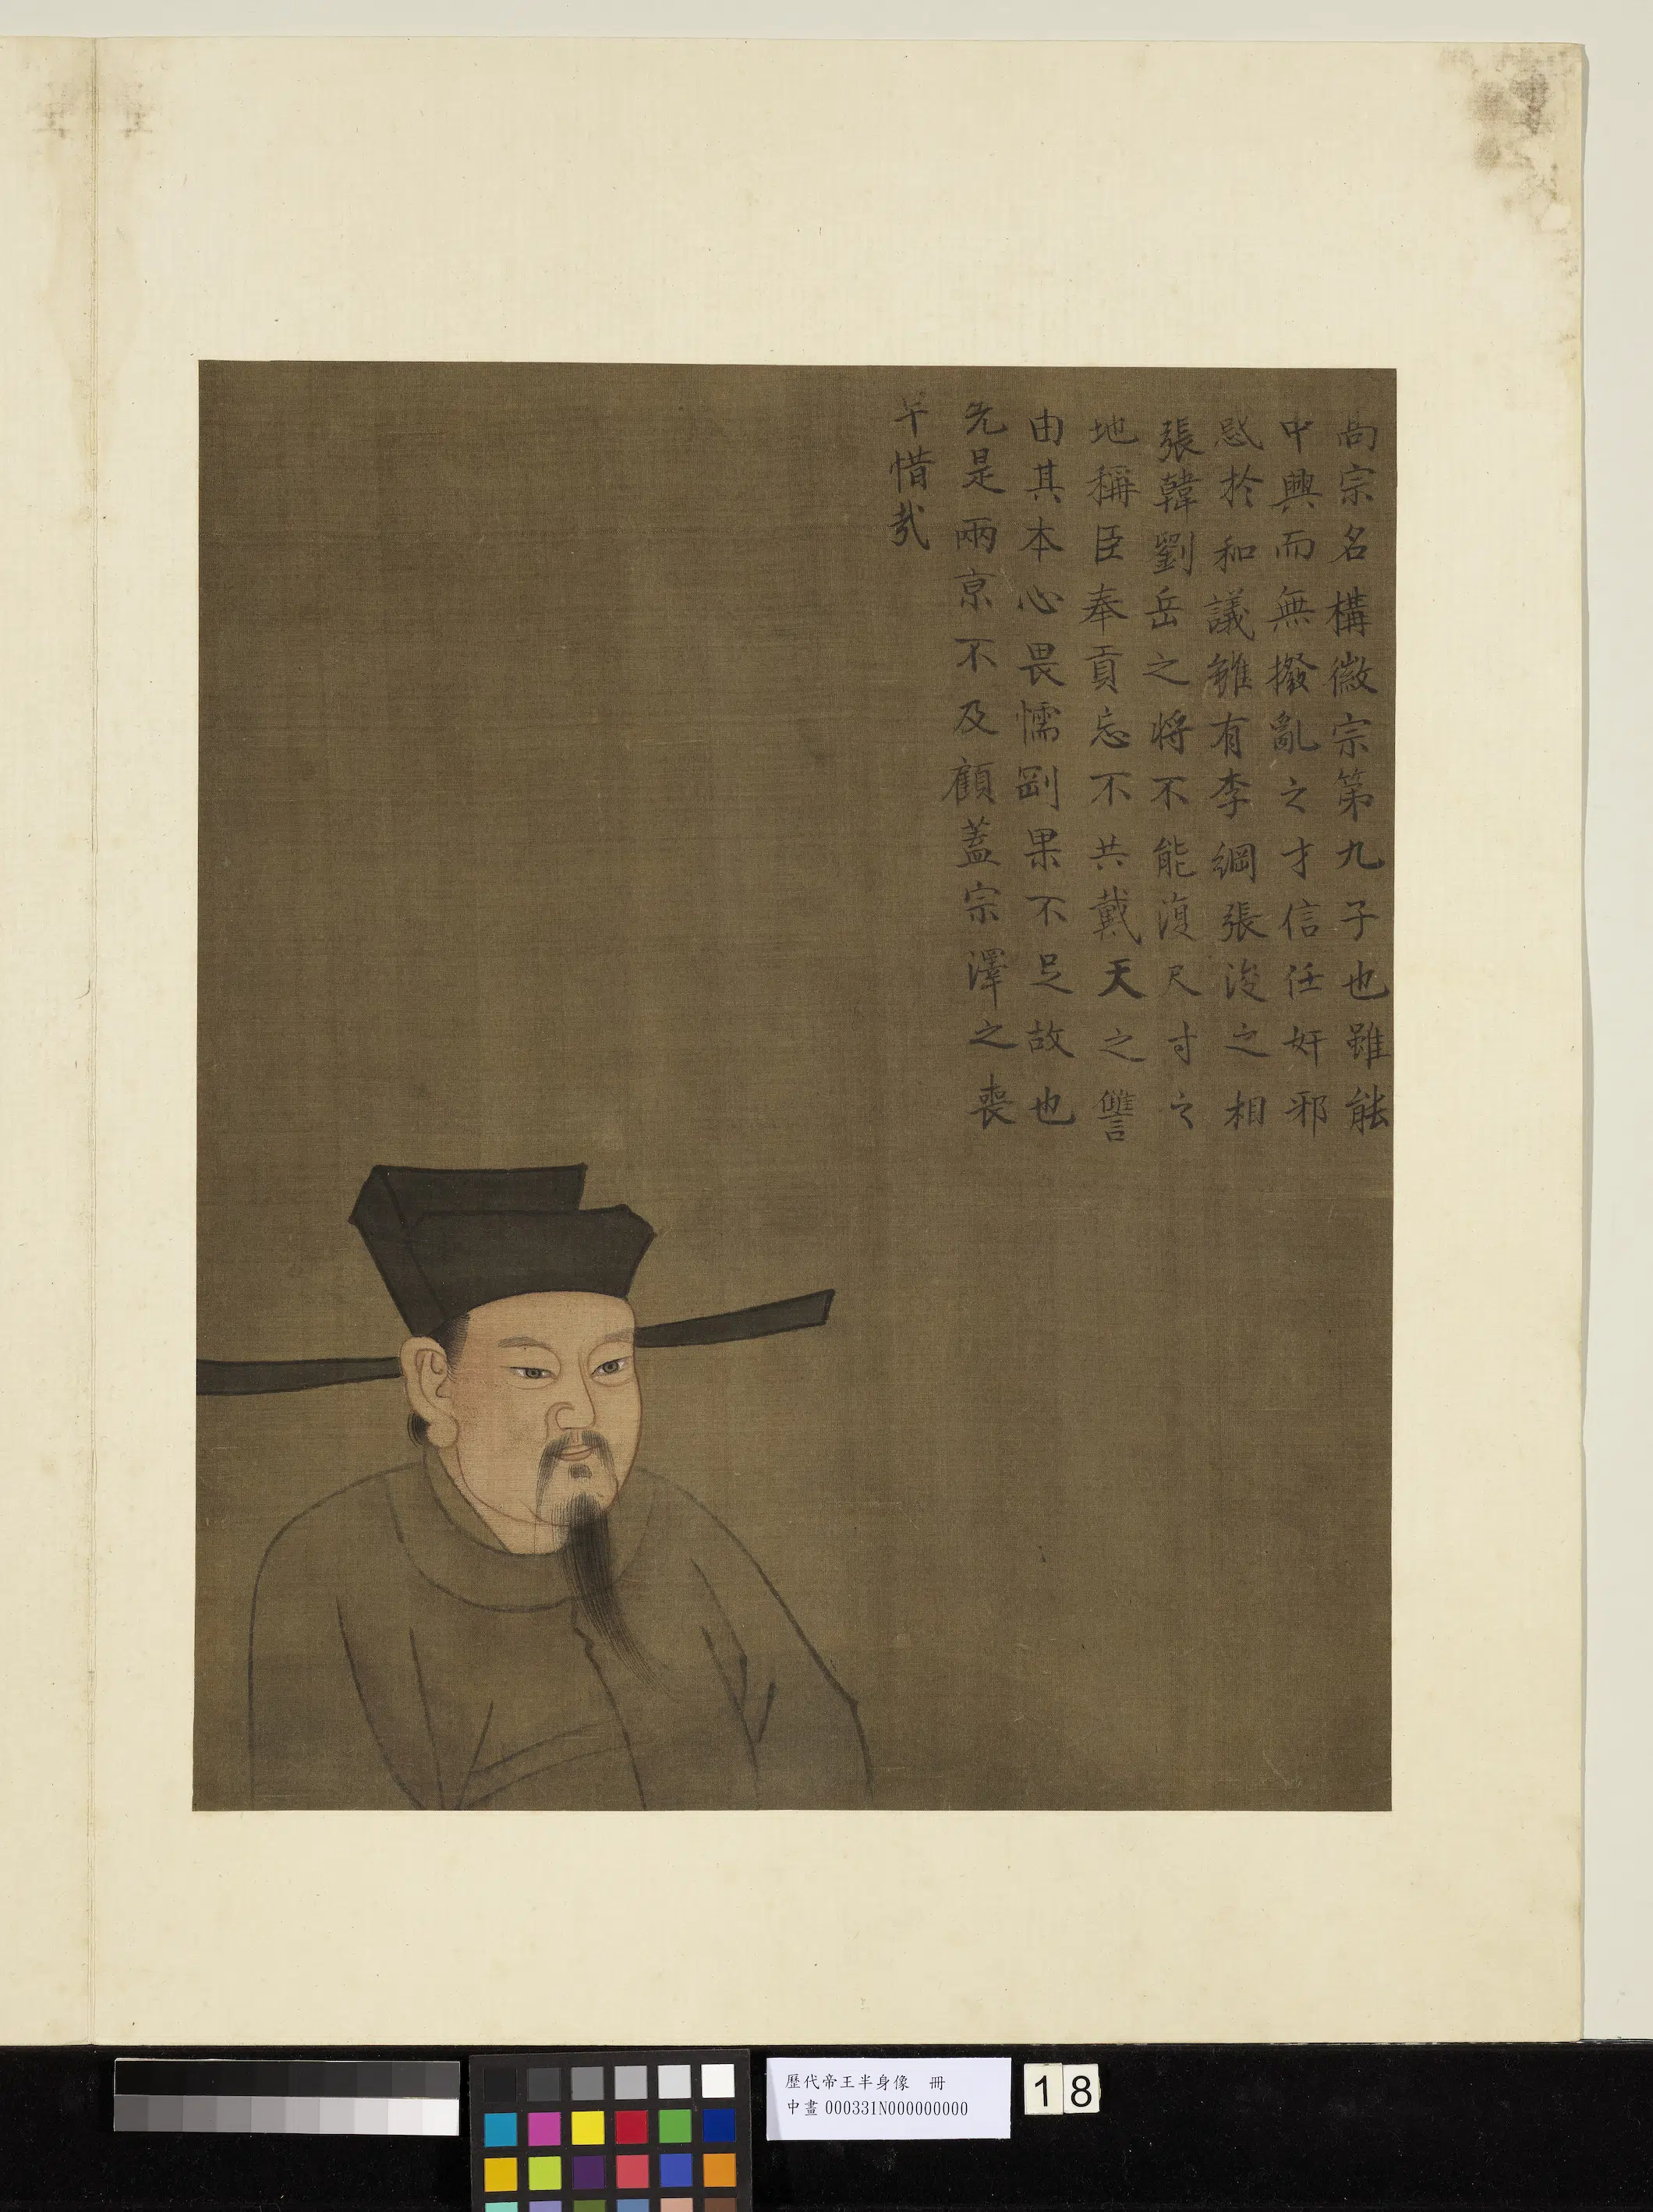 高宗名構徽宗第九子也雖能
中興而無撥亂之才信任奸邪
惑於和議雖有李綱張浚之相
張韓劉岳之將不能復尺寸之
地稱臣奉貢忘不共戴天之讐
由其本心畏懦剛果不足故也
先是兩京不及顧蓋宗澤之喪
早惜哉
歷代帝王半身像　冊
中畫000331N000000000
18